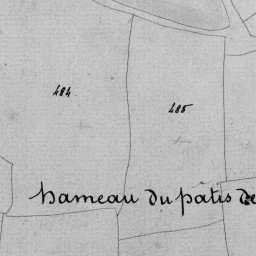 484
485
hameau du patis de